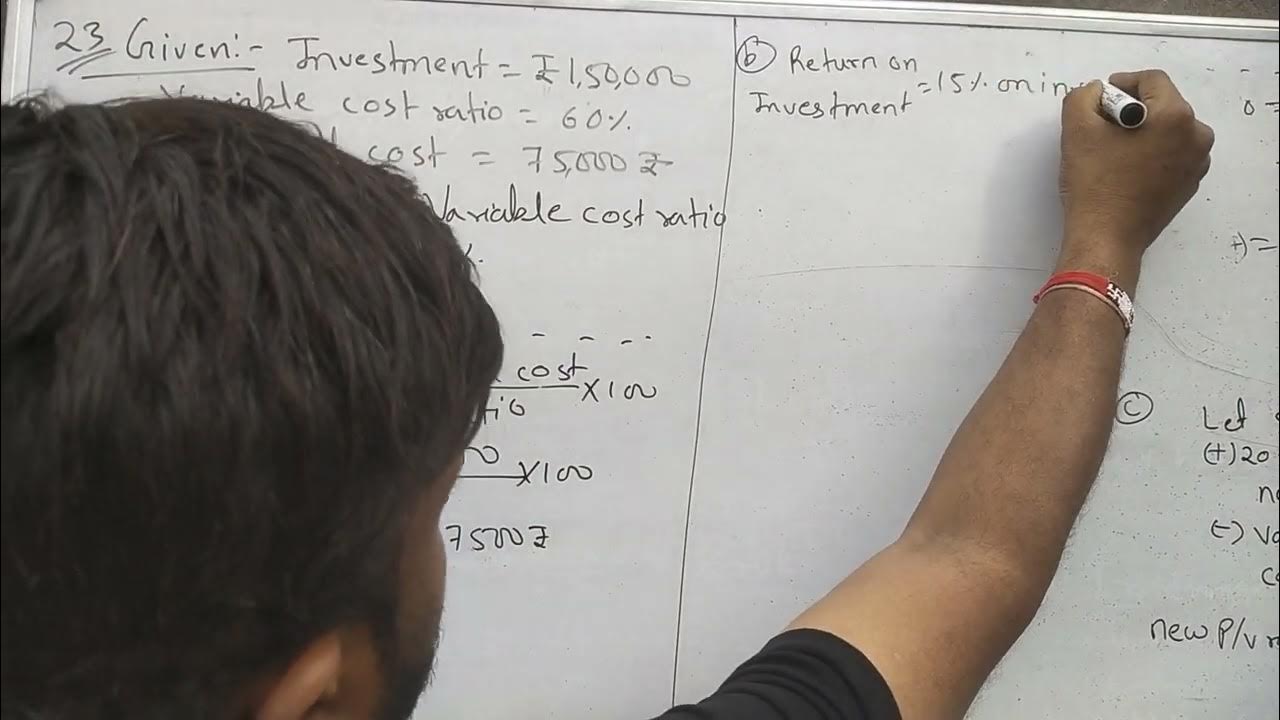 23 Given:- Investment = ₹1,50,000
Variable cost ratio = 60%
cost = 75,000 ₹
Variable cost ratio
%.
cost
×100
×100
7500 ₹
(b) Return on
Investment = 15% on in
(c) Let
(+) 20
(-) Va
new P/v r